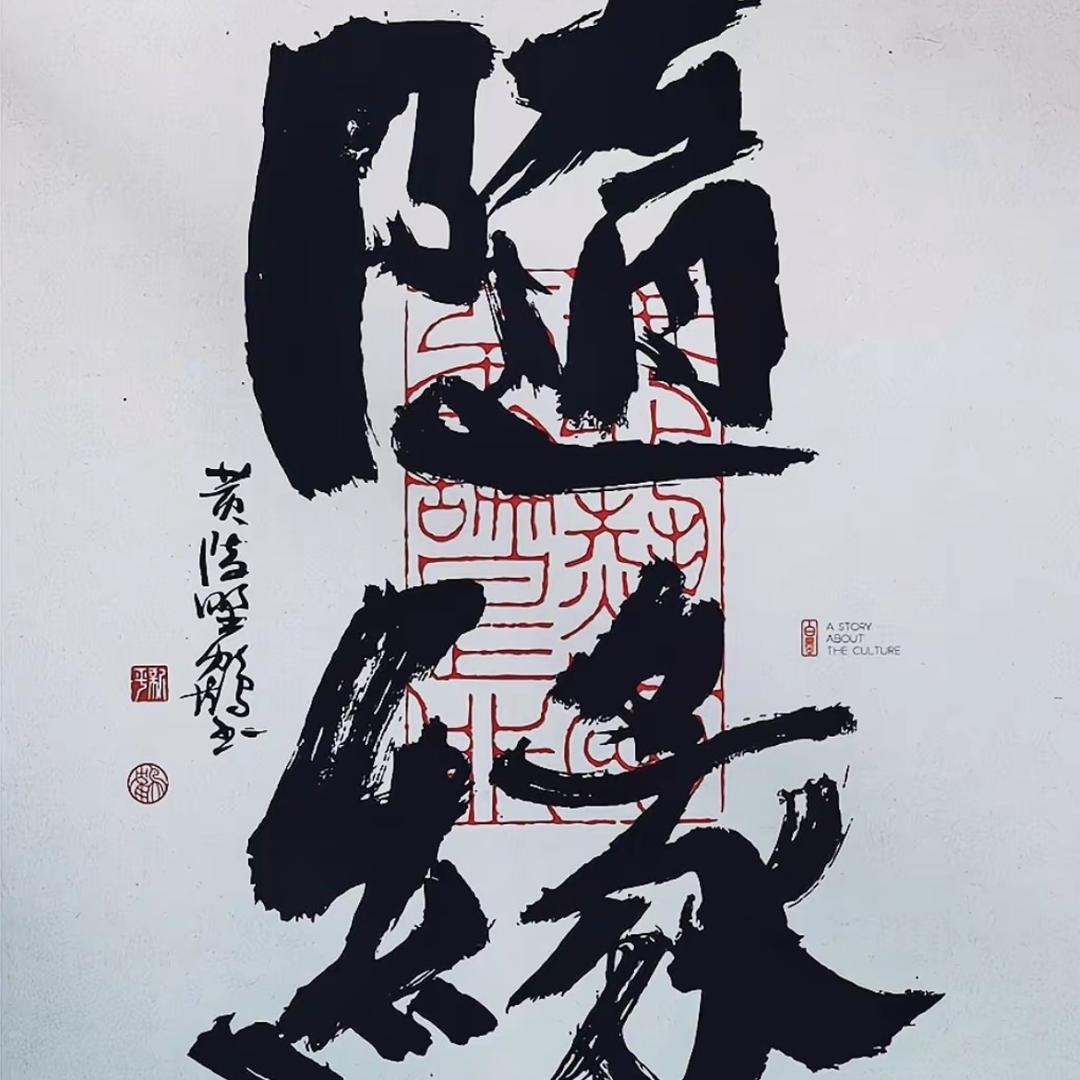 隨緣
黄陵野鶴书
A STORY
ABOUT
THE CULTURE